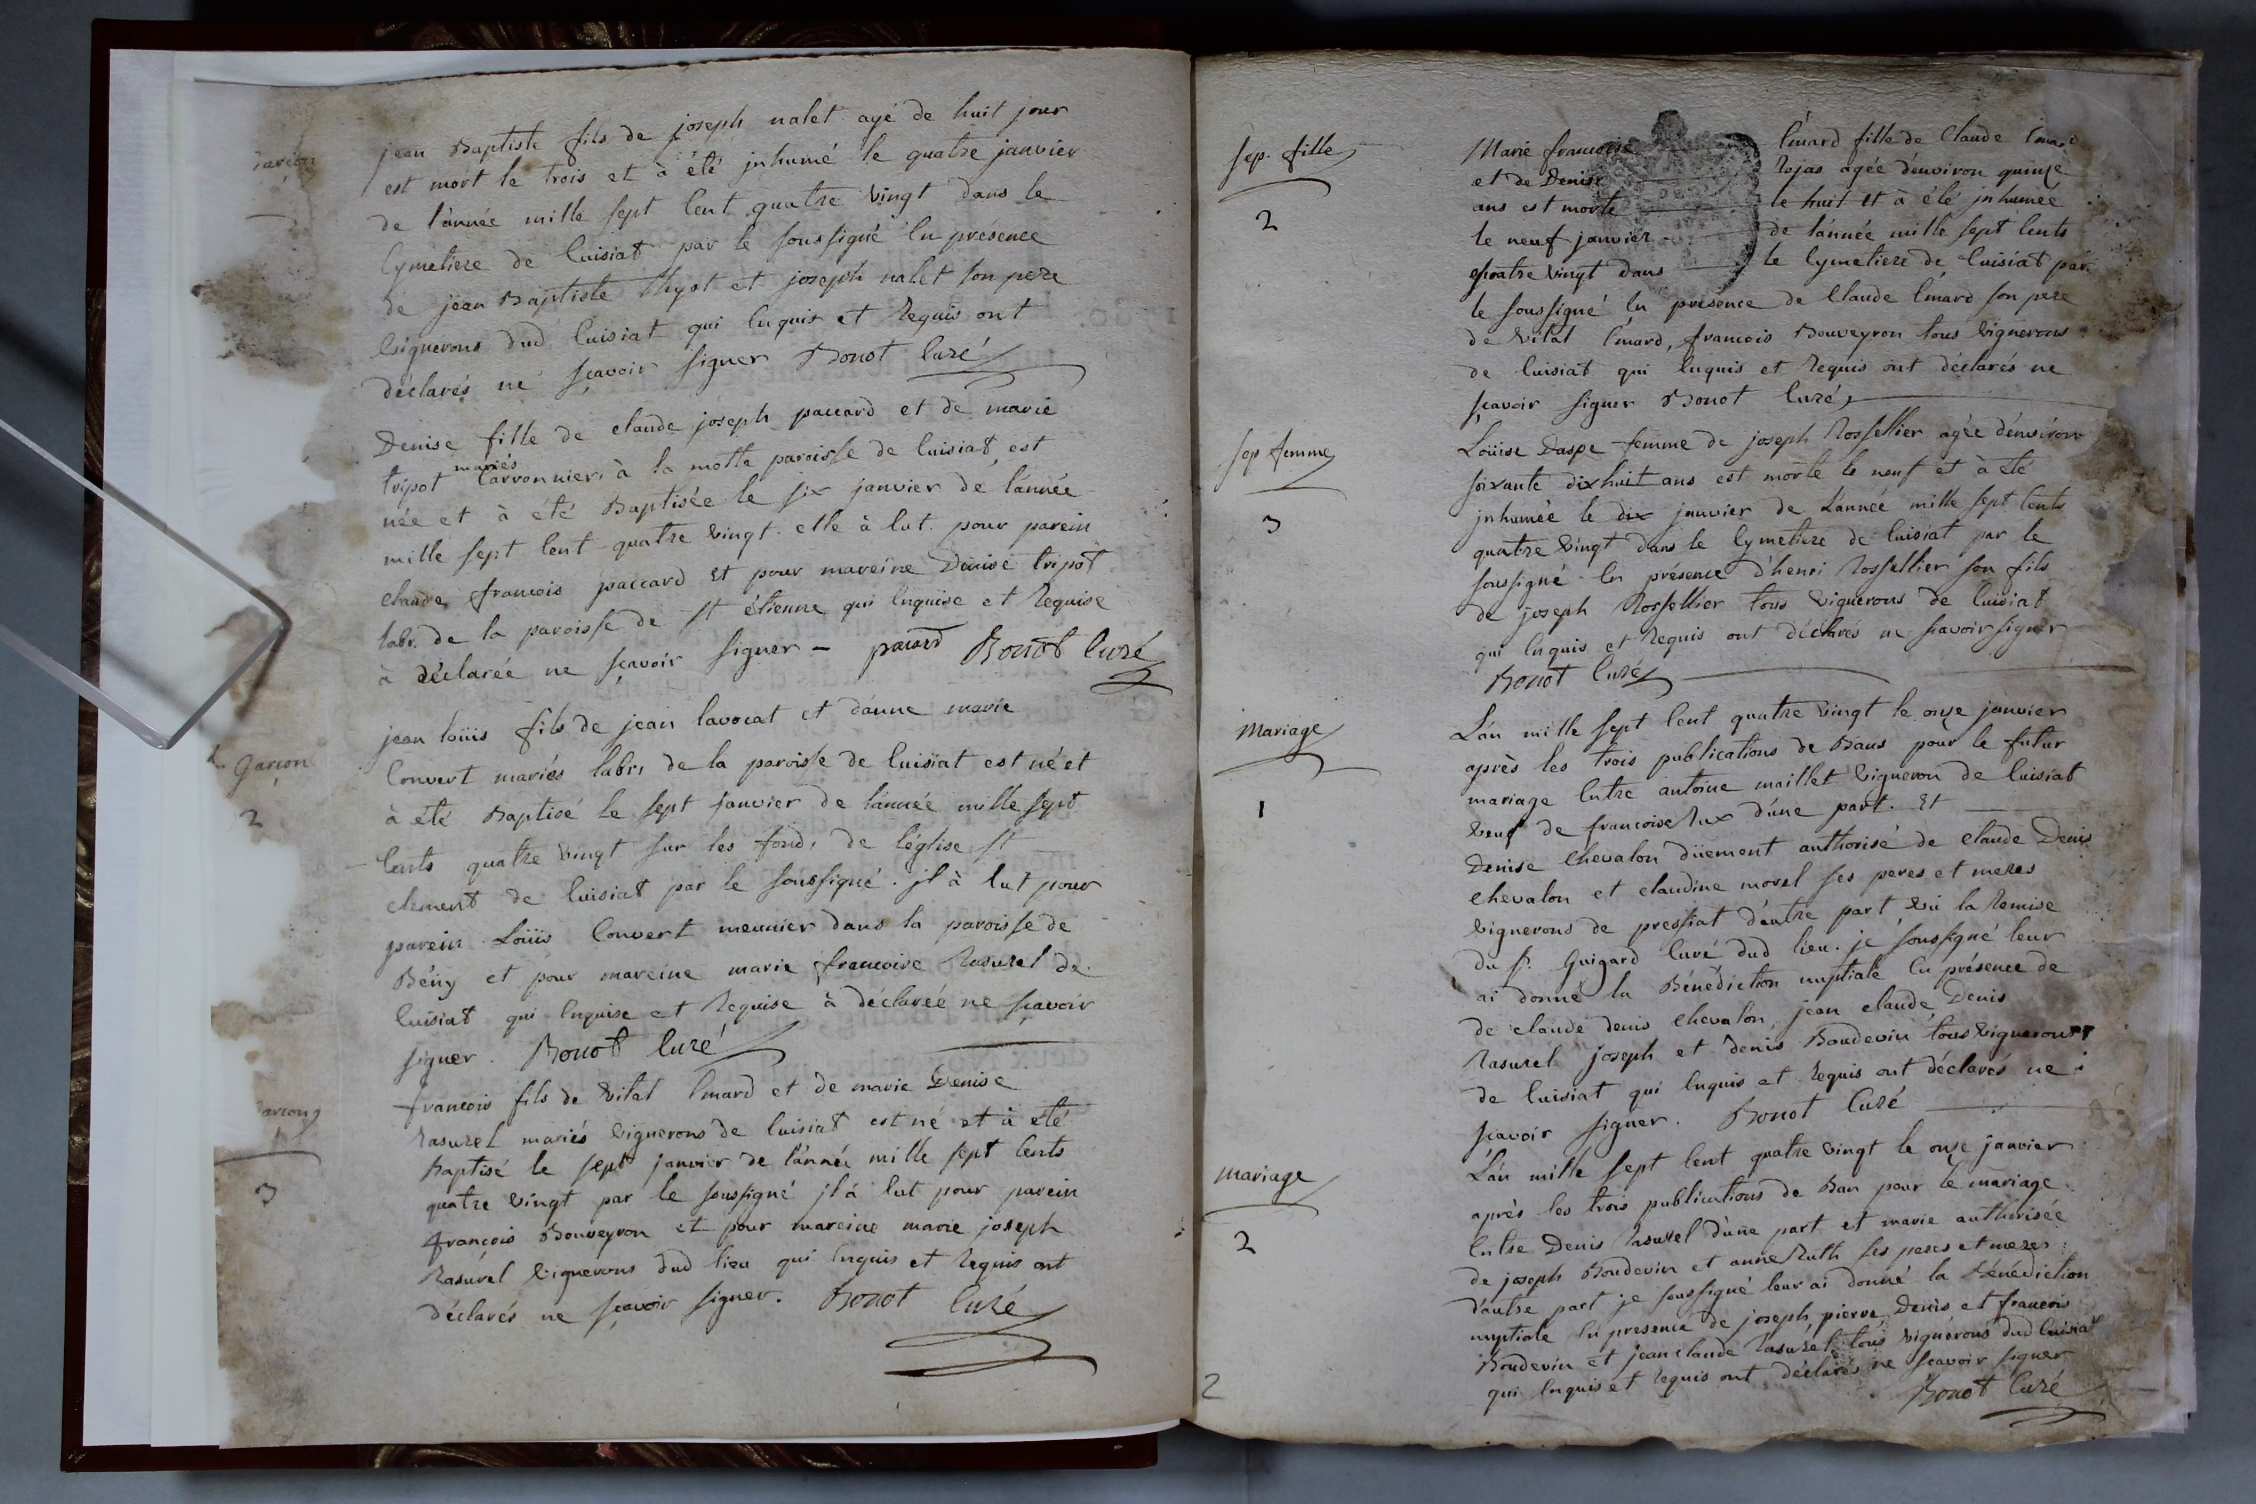 garçon
jean Baptiste fils de joseph nalet agé de huit jour
est mort le trois et à été jnhumé le quatre janvier
de l'année mille sept Cent quatre vingt dans le
Cymetiere de Cuisiat par le soussigné En présence
de jean Baptiste thyot et joseph nalet son pere
Vignerons dud Cuisiat qui Enquis et Requis ont
déclarés ne sçavoir signer Bonot Curé
Denise fille de claude joseph paccard et de marie
tripot mariés Carronniers à la motte paroisse de Cuisiat est
née et à été Baptisée le six janvier de l'année
mille sept Cent quatre vingt. elle à Eut pour parein
claude francois paccard Et pour mareine Denise tripot
labr. de la paroisse de St étienne qui Enquise et Requise
à déclarée ne sçavoir signer - pacard Bonot Curé
Garçon
2
jean Loüis fils de jean lavocat et d'anne marie
Convert mariés labrs de la paroisse de Cuisiat est né et
à été Baptisé le sept janvier de l'année mille sept
Cents quatre vingt sur les fonds de l'église St
clement de Cuisiat par le soussigné. jl à Eut pour
parein Loüis Convert meunier dans la paroisse de
Bény et pour mareine marie francoise Rasurel de
Cuisiat qui Enquise et Requise à déclarée ne sçavoir
signer. Bonot Curé
garcon
3
francois fils de Vital Emard et de marie Denise
Rasurel mariés Vignerons de Cuisiat est né et à été
Baptisé le sept janvier de l'année mille sept Cents
quatre vingt par le soussigné jl à Eut pour parein
françois Bouveyron et pour mareine marie joseph
Rasurel Vignerons dud lieu qui Enquis et Requis ont
déclarés ne sçavoir signer. Bonot Curé
sep. fille
2
Marie francoise Emard fille de Claude Emard
et de Denise Rojas agée d'environ quinze
ans est morte le huit et à été jnhumée
le neuf janvier de l'année mille sept Cents
quatre vingt dans le Cymetiere de Cuisiat par
le soussigné En présence de Claude Emard son pere
de Vital Emard, francois Bouveyron tous Vignerons
de Cuisiat qui Enquis et Requis ont déclarés ne
sçavoir signer Bonot Curé
sep femme
3
Loüise Daspe femme de joseph Rossellier agée d'environ
soixante dixhuit ans est morte le neuf et à été
jnhumée le dix janvier de L'année mille sept Cents
quatre Vingt dans le Cymetiere de Cuisiat par le
soussigné En présence d'henri Rossellier son fils
de joseph Rossellier tous Vignerons de Cuisiat
qui Enquis et Requis ont déclarés ne scavoir signer
Bonot Curé
Mariage
1
L'an mille sept Cent quatre vingt le onze janvier
après les trois publications de Bans pour le futur
mariage Entre antoine maillet Vigneron de Cuisiat
Veuf de francoise Rux d'une part. Et
Denise Chevalon düement authorisé de claude Denis
Chevalon et claudine morel ses peres et meres
Vignerons de pressiat d'autre part Vü la Remise
du Sr. Guigard Curé dud lieu. je soussigné leur
ai donné la Bénédiction nuptiale En présence de
de claude denis chevalon, jean claude, Denis
Rasurel joseph et Denis Boudevin tous Vignerons
de Cuisiat qui Enquis et Requis ont déclarés ne
scavoir signer. Bonot Curé
Mariage
2
L'an mille sept Cent quatre vingt le onze janvier
après les trois publications de Ban pour le mariage
Entre Denis Rasurel d'une part et marie authorisée
de joseph Boudevin et anne Ruth ses peres et meres
d'autre part je soussigné leur ai donné la Bénédiction
nuptiale En presence de joseph, pierre, Denis et francois
Boudevin et jean claude Rasurel tous Vignerons dud Cuisiat
qui Enquis et requis ont déclarés ne scavoir signer
Bonot Curé
2